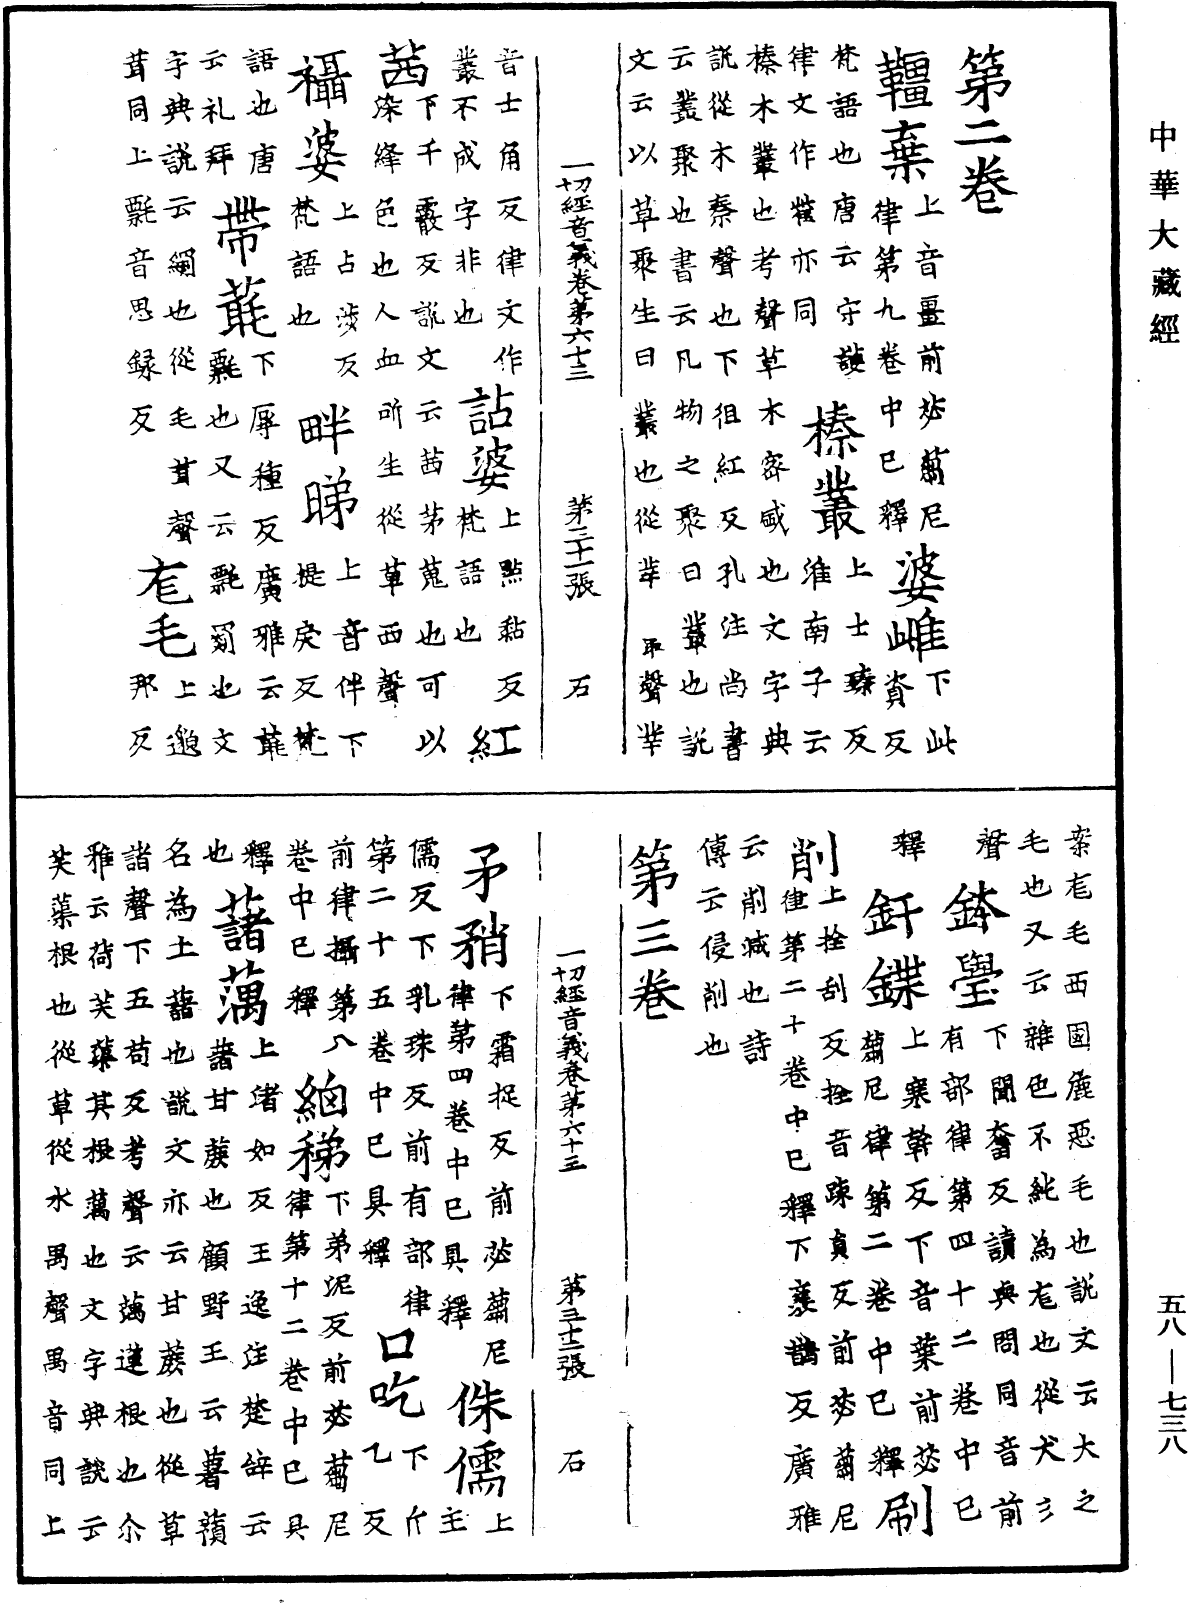 中華大藏經
第二卷
韁棄上音畺前苾蒭尼律第九卷中已釋
婆雌下此資反梵語也唐云守護律文作㸿亦同
榛叢上士臻反淮南子云榛木叢也考聲草木密盛也文字典說從木秦聲也下徂紅反孔注尚書云叢聚也書云凡物之聚曰叢也說文云以草聚生曰叢也從丵取聲丵
一切經音義卷第六十三 第三十一張 石
音士角反律文作叢不成字非也
詀婆上點黏反梵語也
紅茜下千霰反說文云茜茅蒐也可以染絳色也人血所生從草西聲
襵婆上占涉反梵語也
畔睇上音伴下提戾反梵語也唐云礼拜
帶㲨下戎種反廣雅云㲨氎也又云氎罽也文字典說云罽也從毛茸聲茸同上氎音思錄反
㡯毛上邈那反
案㡯毛西國麁惡毛也說文云犬之毛也又云雜色不純為尨也從犬彡聲
鉢璺下聞奮反讀與問同音前有部律第四十二卷中已釋
釬鍱上寒幹反下音葉前苾蒭尼律第二卷中已釋
刷削上拴刮反拴音踈負反前苾蒭尼律第二十卷中已釋下襄鵲反廣雅云削減也詩傳云侵削也
第三卷
一切經音義卷第六十三 第三十二張 石
矛矟下霜捉反前苾蒭尼律第四卷中已具釋
侏儒上主儒反下乳珠反前有部律第二十五卷中已具釋
口吃下斤乙反前律攝第八卷中已釋
緰稊下弟泥反前苾蒭尼律第十二卷中已具釋
藷蕅上渚如反王逸注楚辭云藷甘蔗也顧野王云薯蕷也名為土藷也說文亦云甘蔗也從草諸聲下五苟反考聲云蕅蓮根也尒雅云荷芙蕖其根蕅也文字典說云芙蕖根也從草從水禺聲禺音同上
五八—七三八